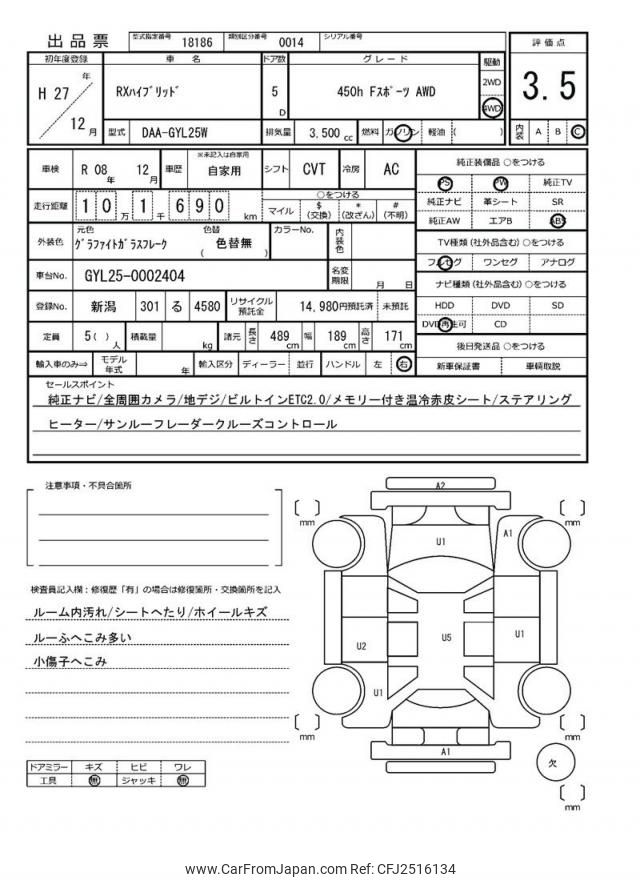 出品票 型式指定番号 18186 類別区分番号 0014 シリアル番号
評価点
3.5
内装 A B C
初年度登録 車名 ドア数 グレード 駆動
H 27 年 12 月 RXハイブリッド 5 D 450h Fスポーツ AWD 2WD 4WD
型式 DAA-GYL25W 排気量 3,500 cc 燃料 ガソリン 軽油 ( )
車検 R 08 年 12 月 車歴 ※未記入は自家用 自家用 シフト CVT 冷房 AC
走行距離 1 0 万 1 千 6 9 0 km
○をつける
マイル $ (交換) * (改ざん) # (不明)
外装色 元色 グラファイトガラスフレーク 色替 ( 色替無 ) カラーNo. 内装色
車台No. GYL25-0002404 名変期限 月 日
登録No. 新潟 301 る 4580 リサイクル預託金 14,980円預託済 未預託
定員 5( ) 人 積載量 kg 諸元 長さ 489 cm 幅 189 cm 高さ 171 cm
輸入車のみ⇒ モデル年式 年 輸入区分 ディーラー 並行 ハンドル 左 右
純正装備品 ○をつける
PS PW 純正TV
純正ナビ 革シート SR
純正AW エアB ABS
TV種類 (社外品含む) ○をつける
フルセグ ワンセグ アナログ
ナビ種類 (社外品含む) ○をつける
HDD DVD SD
DVD再生可 CD
後日発送品 ○をつける
新車保証書 車輌取説
セールスポイント
純正ナビ/全周囲カメラ/地デジ/ビルトインETC2.0/メモリー付き温冷赤皮シート/ステアリング
ヒーター/サンルーフレーダークルーズコントロール
注意事項・不具合箇所
検査員記入欄：修復歴「有」の場合は修復箇所・交換箇所を記入
ルーム内汚れ/シートへたり/ホイールキズ
ルーふへこみ多い
小傷子へこみ
ドアミラー キズ ヒビ ワレ
工具 無 ジャッキ 無
A2
[ ] mm
[ ] mm
U1
A1
U2
U5
U1
U1
[ ] mm
[ ] mm
A1
欠
[ ] mm
www.CarFromJapan.com Ref: CFJ2516134